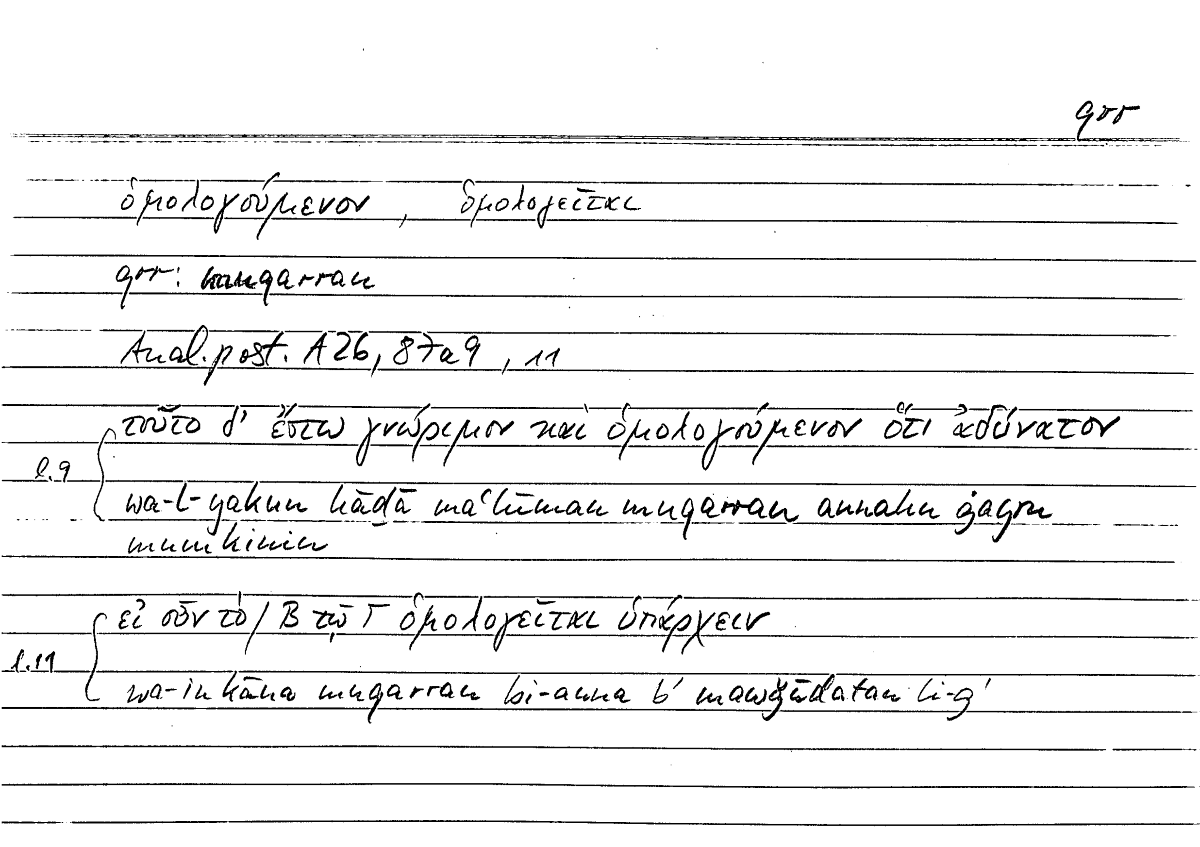 qrr
ὁμολογούμενον , ὁμολογεῖται
qrr: muqarran
Anal. post. A 26, 87a9 , 11
τοῦτο δ' ἔστω γνώριμον καὶ ὁμολογούμενον ὅτι ἀδύνατον
l.9
wa-l-yakun hāḏā maʿlūman muqarran annahu ġayru
mumkinin
εἰ οὖν τὸ / Β τῷ Γ ὁμολογεῖται ὑπάρχειν
l.11
wa-in kāna muqarran bi-anna b' mawǧūdatan li-g'